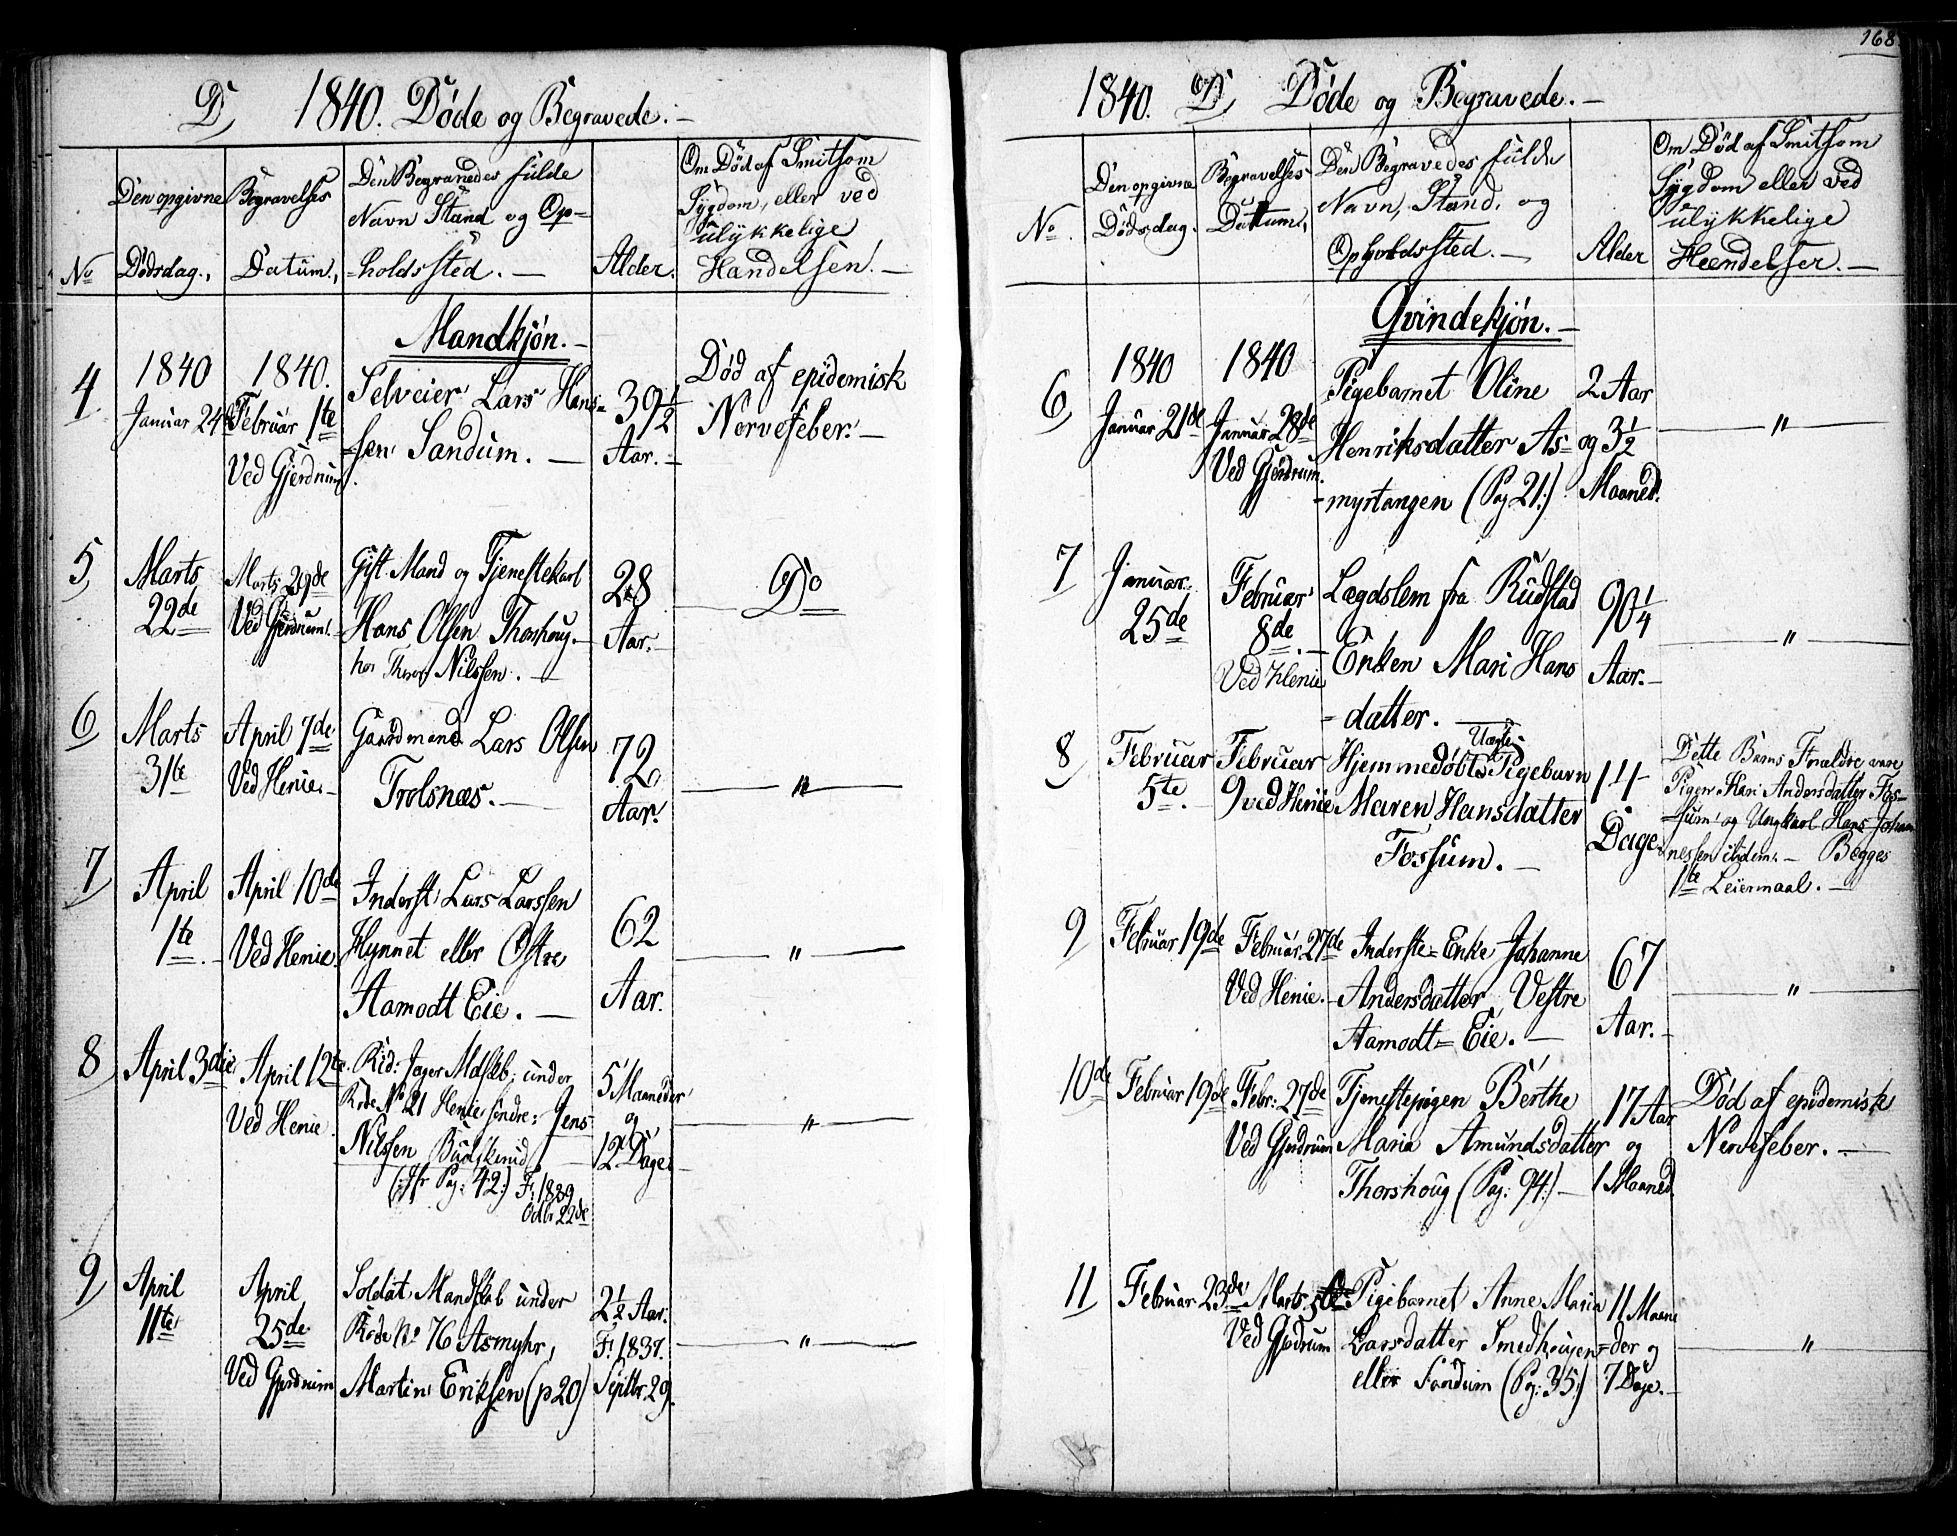 D, 1840. Døde og Begravede. —
No
Den opgivne
Dødsdag.,
Begravelses
Datum.,
Den Begravedes fulde
Navn Stand og Op=
=holdssted. —
Alder.
Om Død af Smitsom
Sygdom, eller ved
ulykkelige
Handelsen. —
Mandkjøn. —
4,
1840
Januar 24de
1840.
Februar 1te
Ved Gjerdrum.
Selveier Lars Han=
=sen Sandum. —
39½
Aar. —
Død af epidemisk
Nervefeber. —
5,
Marts
22de
Marts 29de
Ved Gjerdrum.
Gift Mand og Tjenestekarl
Hans Olsen Thorshoug. —
hos Nilssen. —
28
Aar. —
Do
6,
Marts
31te
April 7de
Ved Henie. —
Gaardmand Lars Olsen
Trolsnæs. —
72
Aar.
— " —
7,
April
1te
April 10de
Ved Henie.
Inderst Lars Larssen
Hynnet eller Østre
Aamodt Eie. —
62
Aar.
— " —
8,
April 3die
April 12te
Ved Henie
Rid: Jager Mdskb: under
Rode No 21 Henie søndre: Jens
Nilssen
(:Jfr Pag: 42:) F. 1839
Octbr 22de
5 Maaneder
og
12 Dage. —
— " —
9,
April
11te
April
25de
Ved Gjerdrum
Soldat Mandskab under
Rode No 76 Asmyhr,
Martin Eriksen (p20)
2½ Aar.
F. 1837.
Septbr. 29.
— " —
168.
1840. D, Døde og Begravede. —
No.
Den opgivne
Dødsdag.
Begravelses
Dattum.,
Den Begravedes fulde
Navn, Stand, og
Opholdssted. —
Alder
Om Død af Smitsom
Sygdom eller ved
ulykkelige
Hændelser. —
Qvindekjøn. —
6,
1840
Januar 21de
1840
Januar 28de
Ved Gjerdrum.
Pigebarnet Oline
Henriksdatter As=
=myrtangen (Pag 21:)
2 Aar
og 3½
Maaned.
— " —
7,
Januar.
25de
Februar
8de. —
Ved Henie
Lægdslem fra Rudstad
Enken Mari Hans
=datter. —
90¼
Aar. —
— " —
8,
Februar
5te.
Februar
9 ved Henie
Uægte
Hjemmedøbte Pigebarn
Maren Hansdatter
Fossum. —
14
Dage.
Dette Barns Forældre vare
Pigen Kari Andersdatter Fos=
=sum og Ungkarl Hans Johan
nessen ibidem. — Begges
1te Leiermaal. —
9,
Februar 19de
Februar 27de
Ved Henie. —
Inderste=Enke Johanne
Andersdatter Vestre
Aamodt=Eie. —
67
Aar. —
— " —
10de
Februar 19de
Febr: 27de
Ved Gjerdrum
Tjenestepigen Berthe
Maria Amundsdatter
Thorshoug (Pag: 94:) —
17 Aar
og
1 Maaned
Død af epidemisk
Nervefeber. —
11,
Februar 23de
Marts
Ved Gjerdrum
Pigebarnet Anne Maria
Larsdatter Smedhougen
eller Sandum (Pag: 35:)
11 Maane
=der og
7 Dage. —
— " —